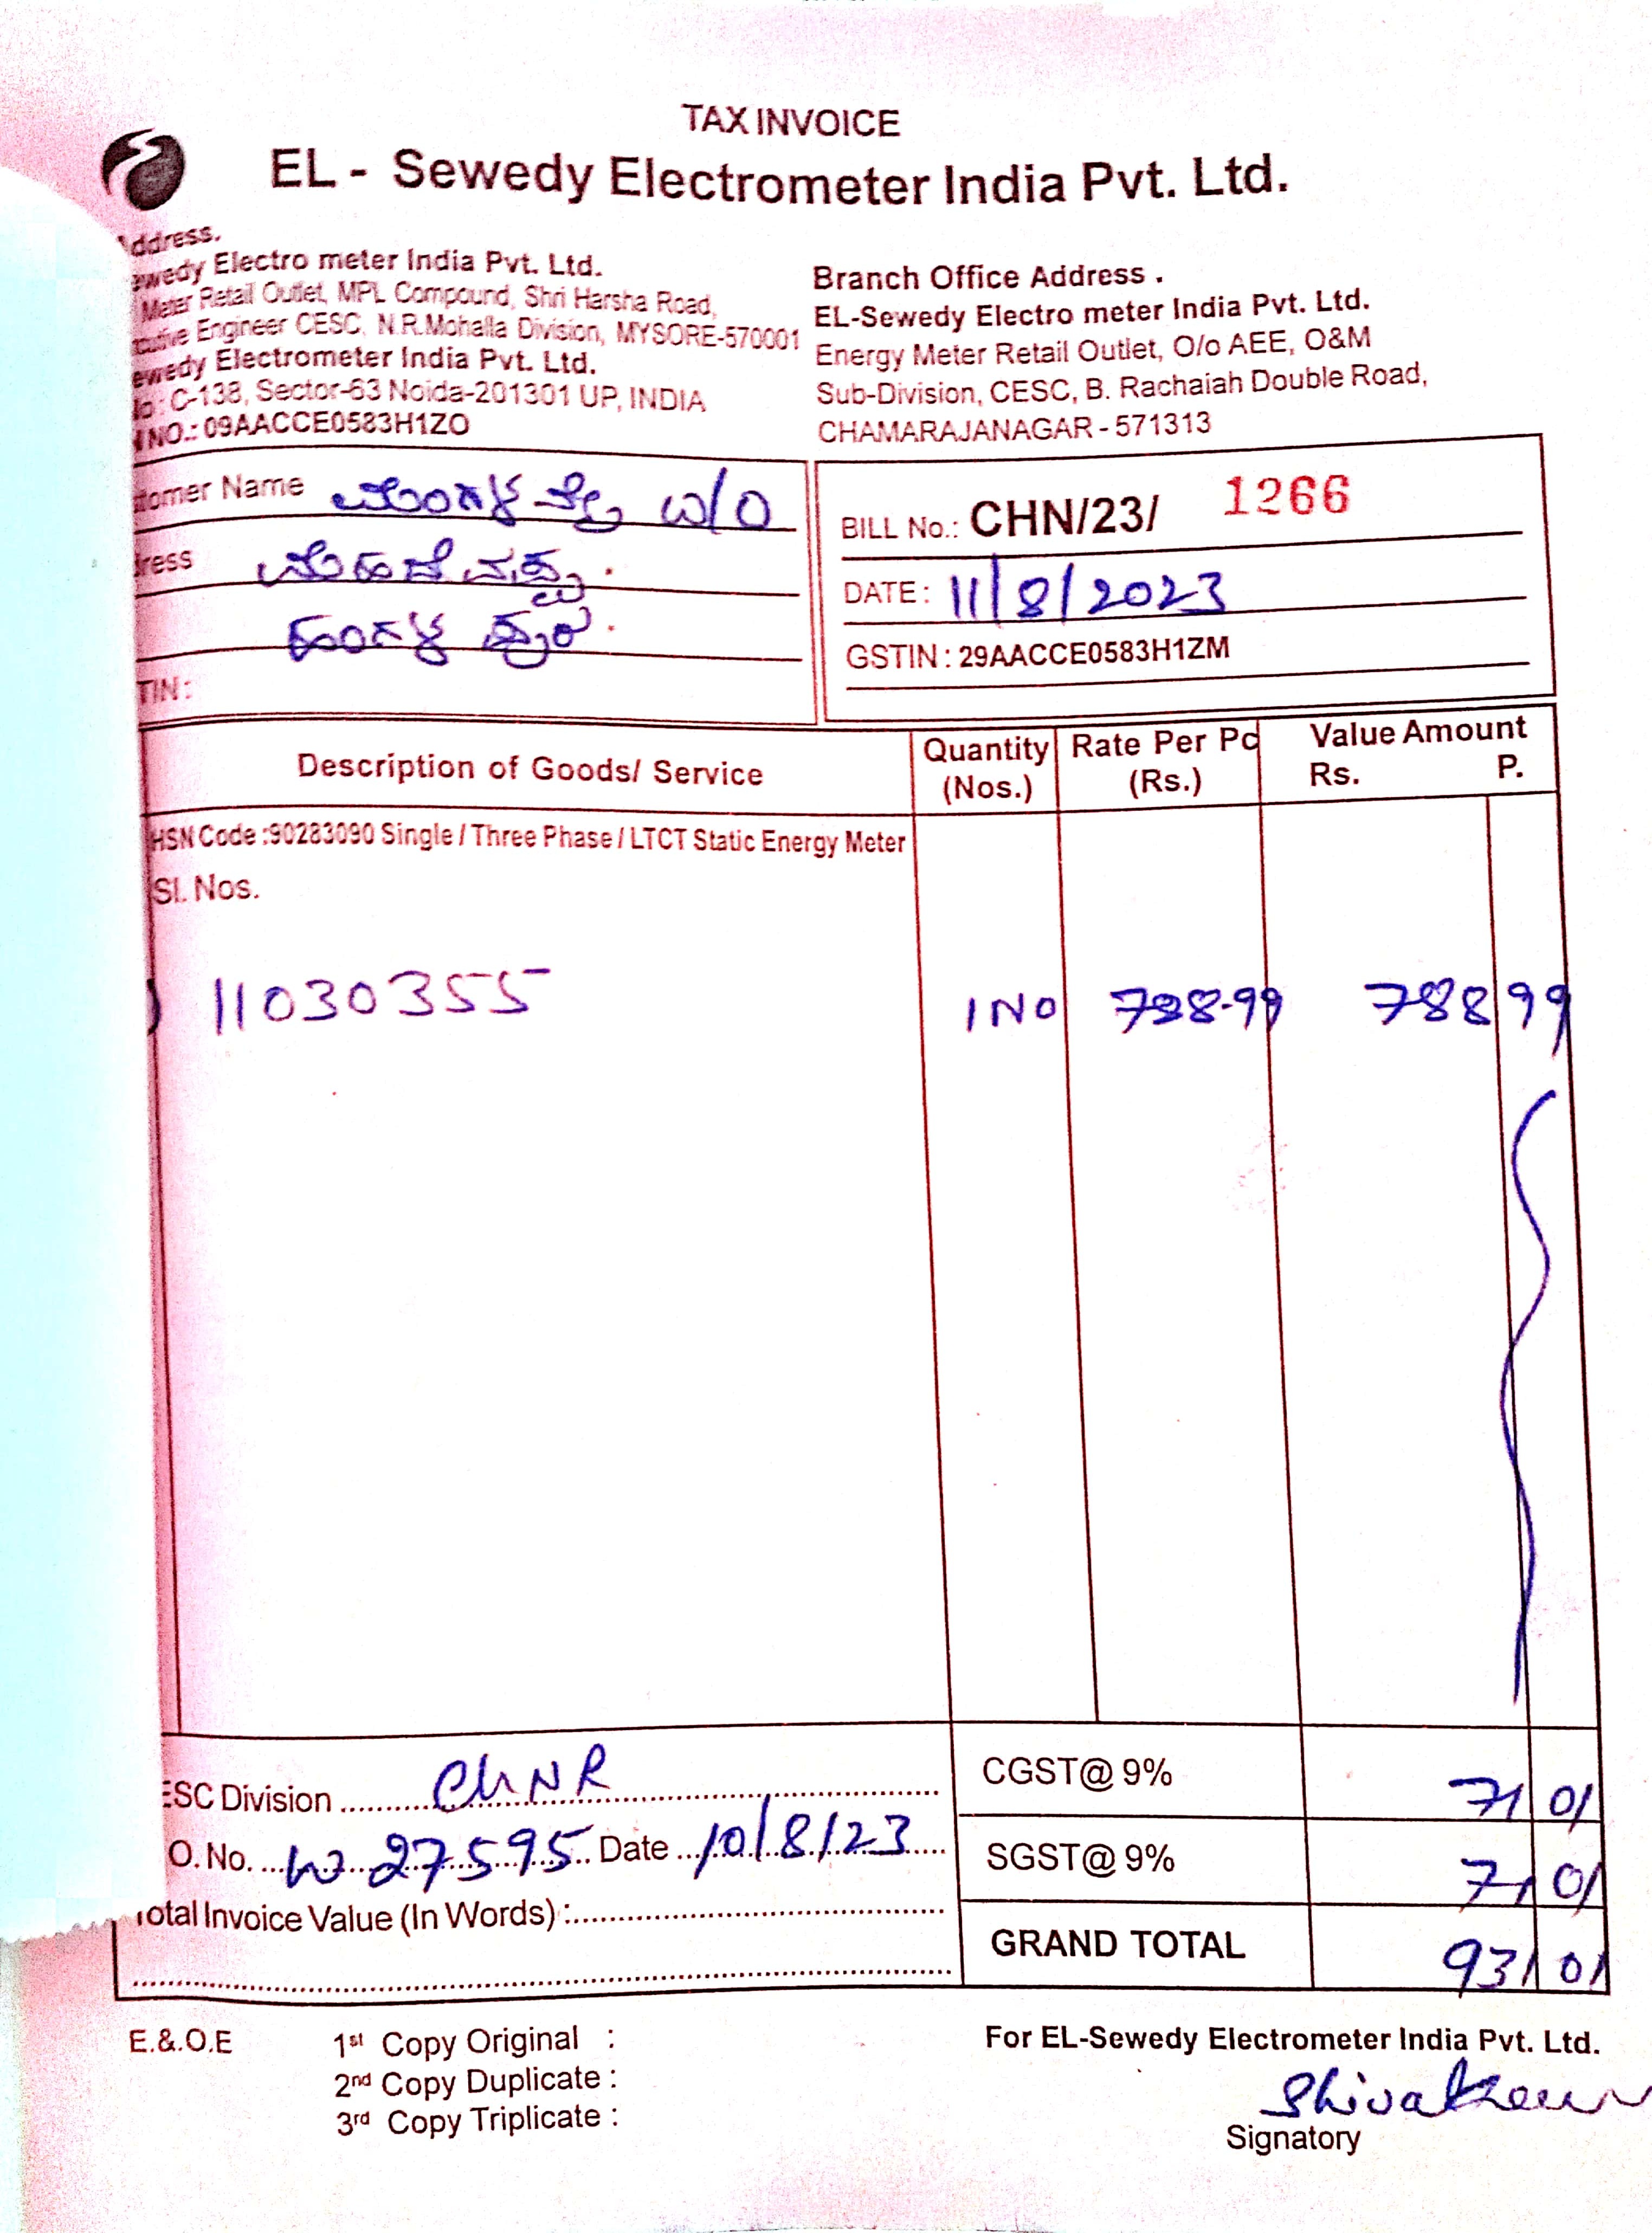 TAX INVOICE
EL - Sewedy Electrometer India Pvt. Ltd.
ddress.
ewedy Electro meter India Pvt. Ltd.
Meter Retail Outlet, MPL Compound, Shri Harsha Road,
cutive Engineer CESC, N.R.Mohalla Division, MYSORE-570001
ewedy Electrometer India Pvt. Ltd.
C-138, Sector-63 Noida-201301 UP, INDIA
NO.: 09AACCE0583H1ZO
Branch Office Address .
EL-Sewedy Electro meter India Pvt. Ltd.
Energy Meter Retail Outlet, O/o AEE, O&M
Sub-Division, CESC, B. Rachaiah Double Road,
CHAMARAJANAGAR - 571313
tomer Name W/O
ress
TIN:
BILL No.: CHN/23/ 1266
DATE : 11/8/2023
GSTIN : 29AACCE0583H1ZM
Description of Goods/ Service Quantity (Nos.) Rate Per Pc (Rs.) Value Amount Rs. P.
HSN Code :90283090 Single / Three Phase / LTCT Static Energy Meter
Sl. Nos.
) 11030355 1 NO 788-99 788 99
ESC Division CHNR
CGST@ 9% 71 01
O. No. W 27595 Date 10/8/23
SGST@ 9% 71 01
Total Invoice Value (In Words) :
GRAND TOTAL 931 01
E.&.O.E
1st Copy Original :
2nd Copy Duplicate :
3rd Copy Triplicate :
For EL-Sewedy Electrometer India Pvt. Ltd.
Signatory